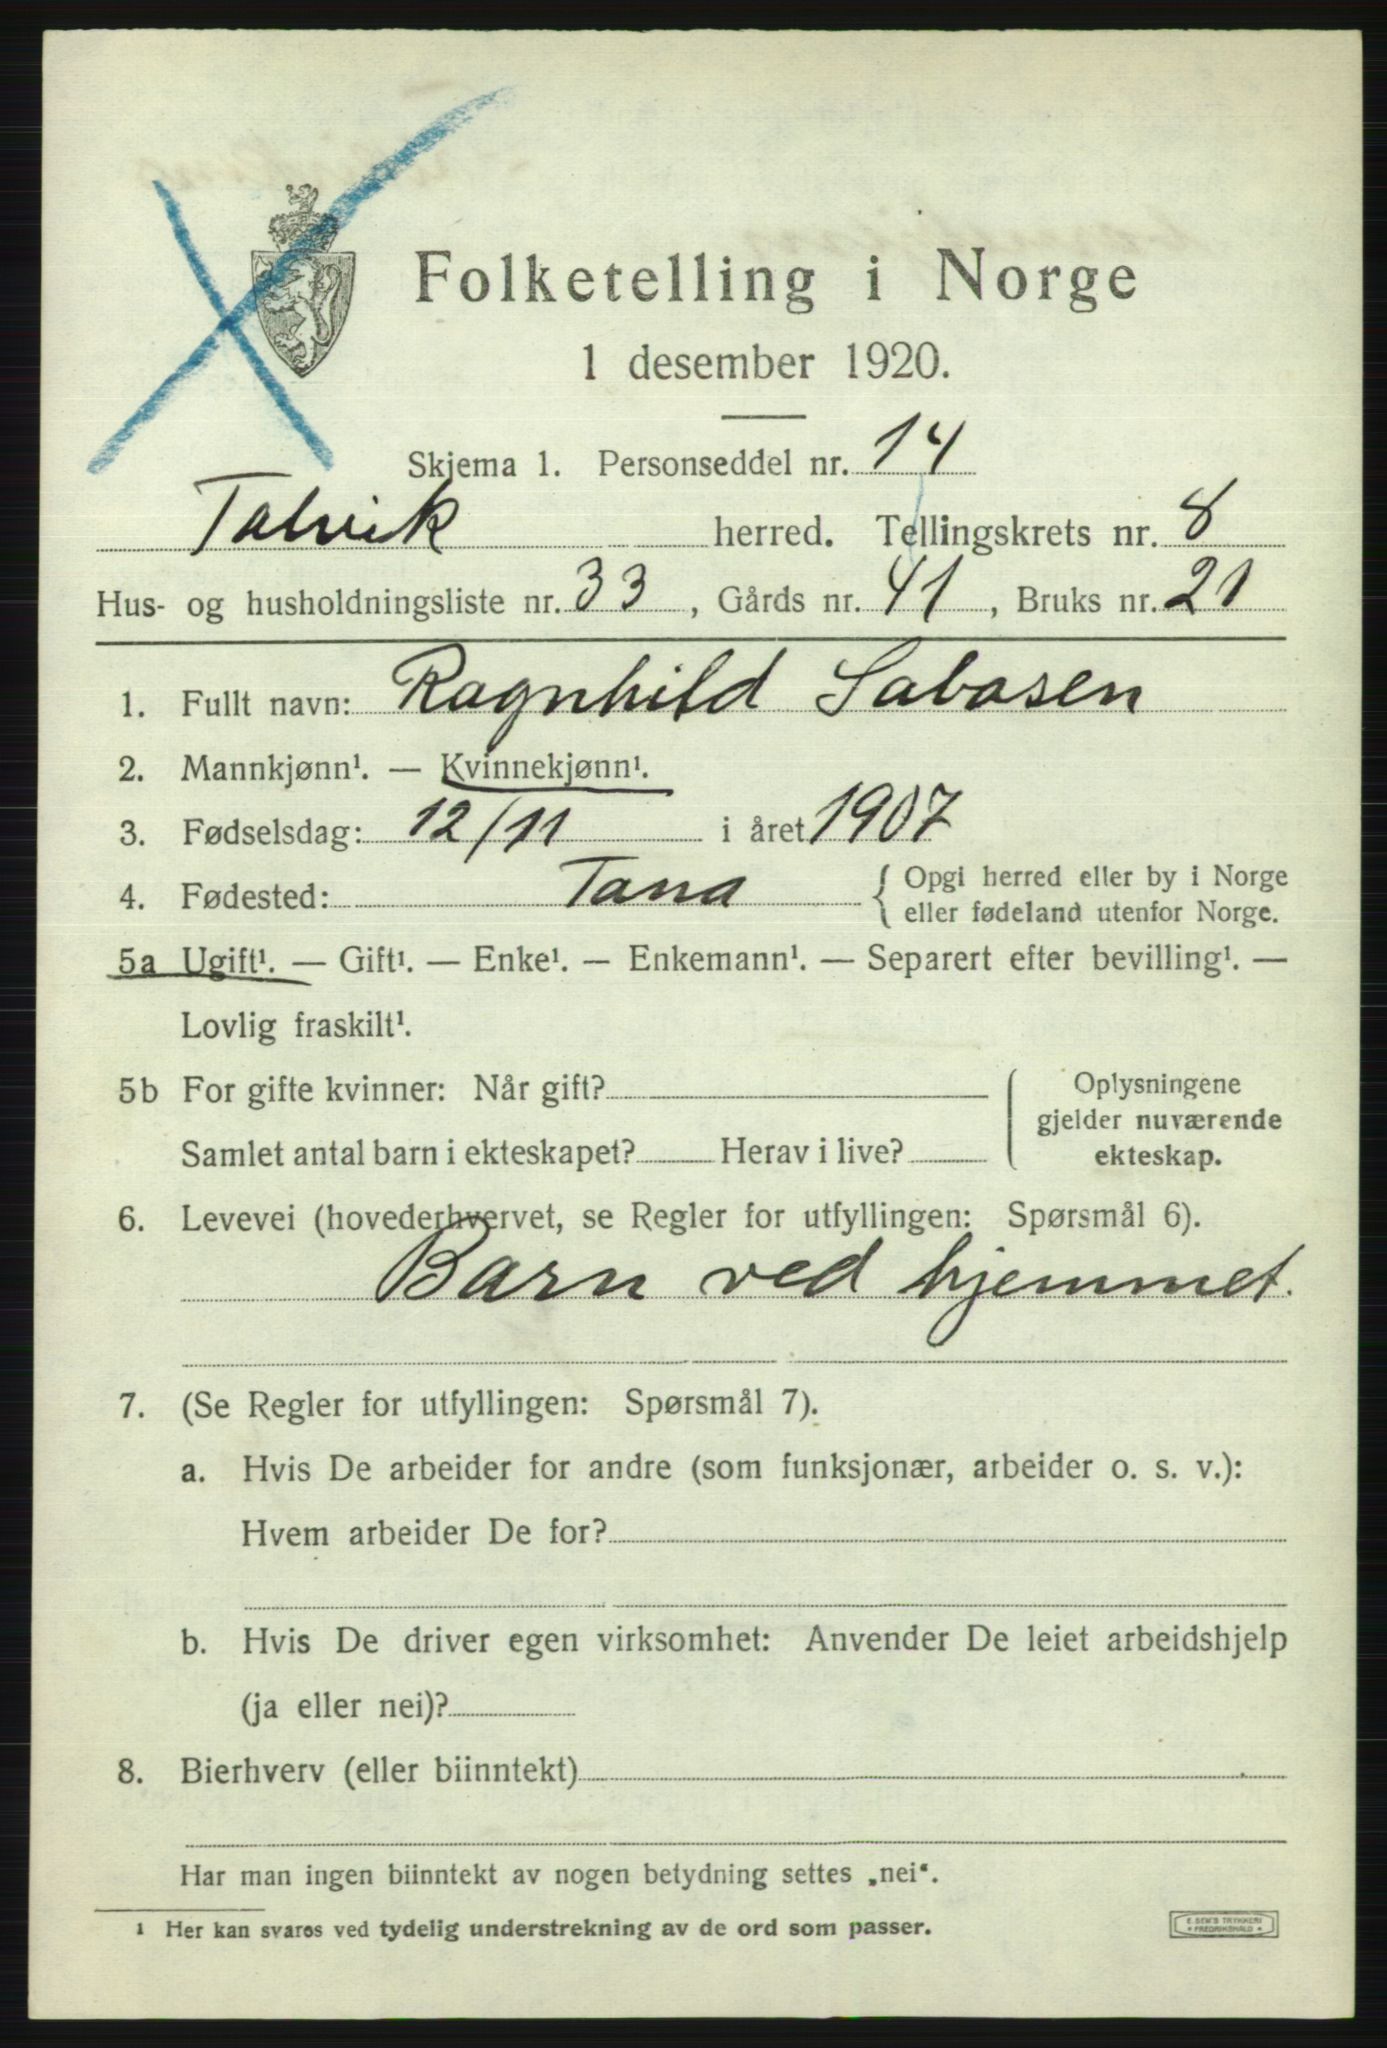 Folketelling i Norge
1 desember 1920.
Skjema 1. Personseddel nr. 14
Talvik herred. Tellingskrets nr. 8
Hus- og husholdningsliste nr. 33, Gårds nr. 41, Bruks nr. 21
1. Fullt navn: Ragnhild Sabasen
2. Mannkjønn¹. — Kvinnekjønn¹.
3. Fødselsdag: 12/11 i året 1907
4. Fødested: Tana { Opgi herred eller by i Norge
eller fødeland utenfor Norge.
5a Ugift¹. — Gift¹. — Enke¹. — Enkemann¹. — Separert efter bevilling¹. —
Lovlig fraskilt¹.
5b For gifte kvinner: Når gift? Oplysningene
gjelder nuværende
Samlet antal barn i ekteskapet? Herav i live? ekteskap.
6. Levevei (hovederhvervet, se Regler for utfyllingen: Spørsmål 6).
Barn ved hjemmet.
7. (Se Regler for utfyllingen: Spørsmål 7).
a. Hvis De arbeider for andre (som funksjonær, arbeider o. s. v.):
Hvem arbeider De for?
b. Hvis De driver egen virksomhet: Anvender De leiet arbeidshjelp
(ja eller nei)?
8. Bierhverv (eller biinntekt)
Har man ingen biinntekt av nogen betydning settes „nei“.
¹ Her kan svares ved tydelig understrekning av de ord som passer.
E. SEM'S TRYKKERI
FREDRIKSHALD